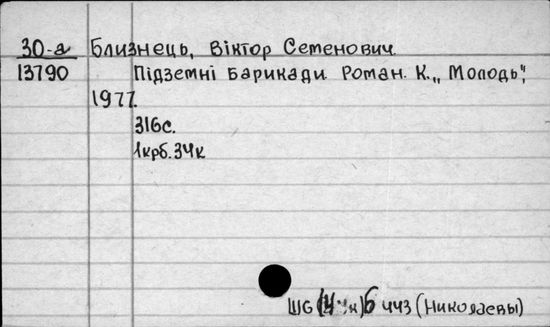 30-а Близнець, Віктор Семенович.
13790 Підземні барикади. Роман. К., „Молодь",
1977.
316с.
1крб.34к
Ш6 6 ччз (Николаевы)